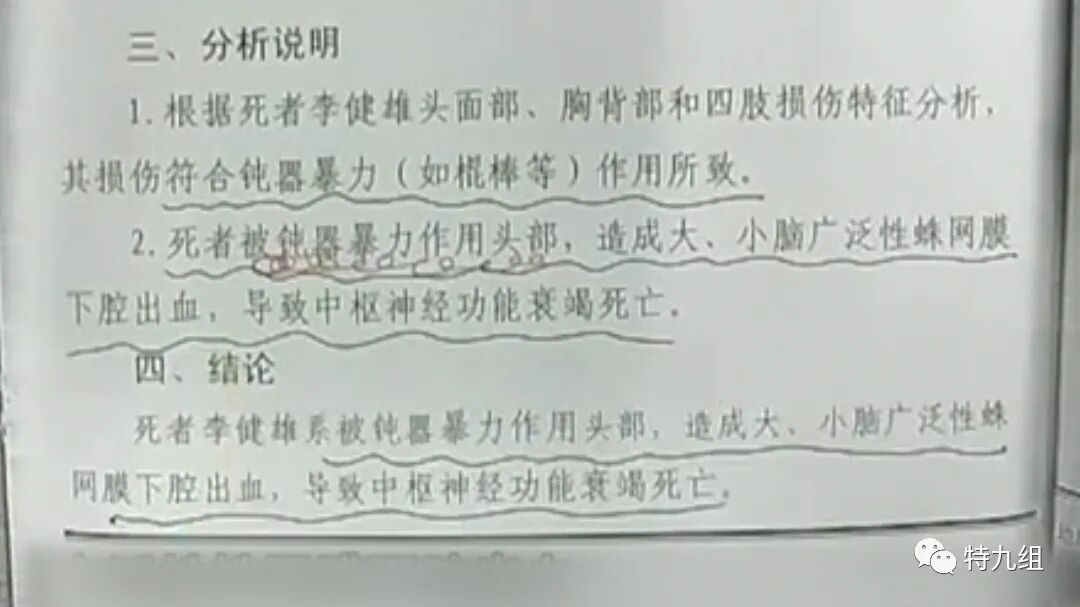 三、分析说明
1.根据死者李健雄头面部、胸背部和四肢损伤特征分析，
其损伤符合钝器暴力（如棍棒等）作用所致。
2.死者被钝器暴力作用头部，造成大、小脑广泛性蛛网膜
下腔出血，导致中枢神经功能衰竭死亡。
四、结论
死者李健雄系被钝器暴力作用头部，造成大、小脑广泛性蛛
网膜下腔出血，导致中枢神经功能衰竭死亡。
特九组